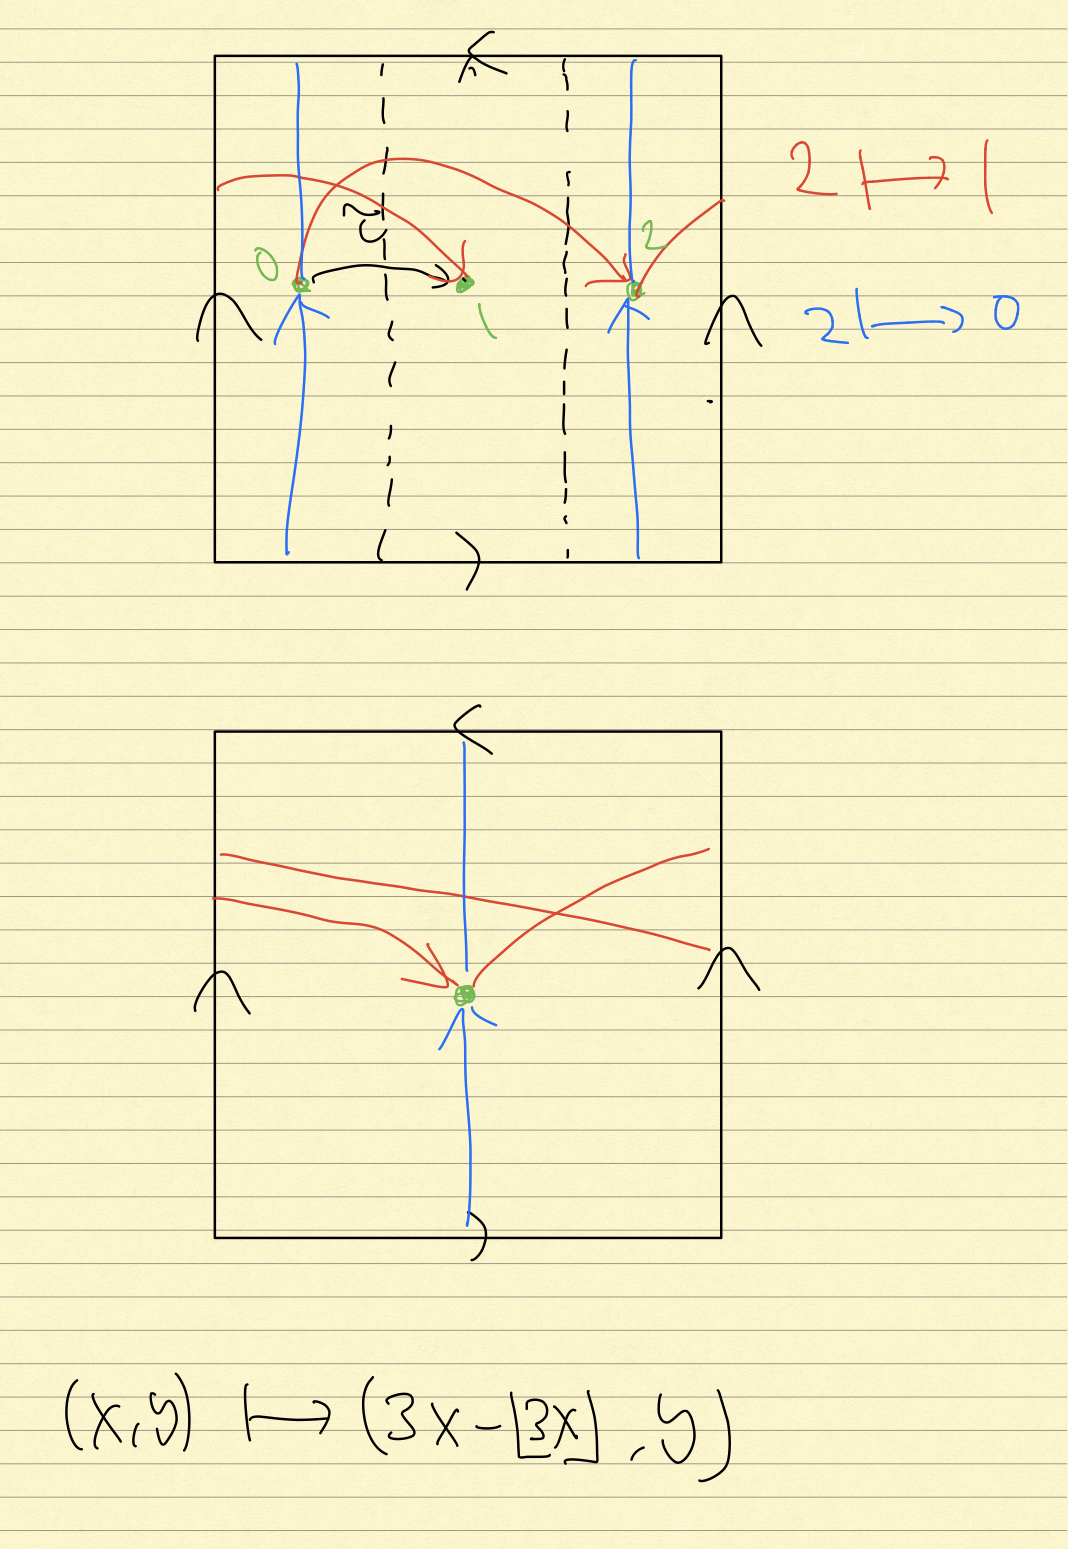 2 ↦ 1
0
2
1
2 ↦ 0
(x,y) ↦ (3x-⌊3x⌋,y)